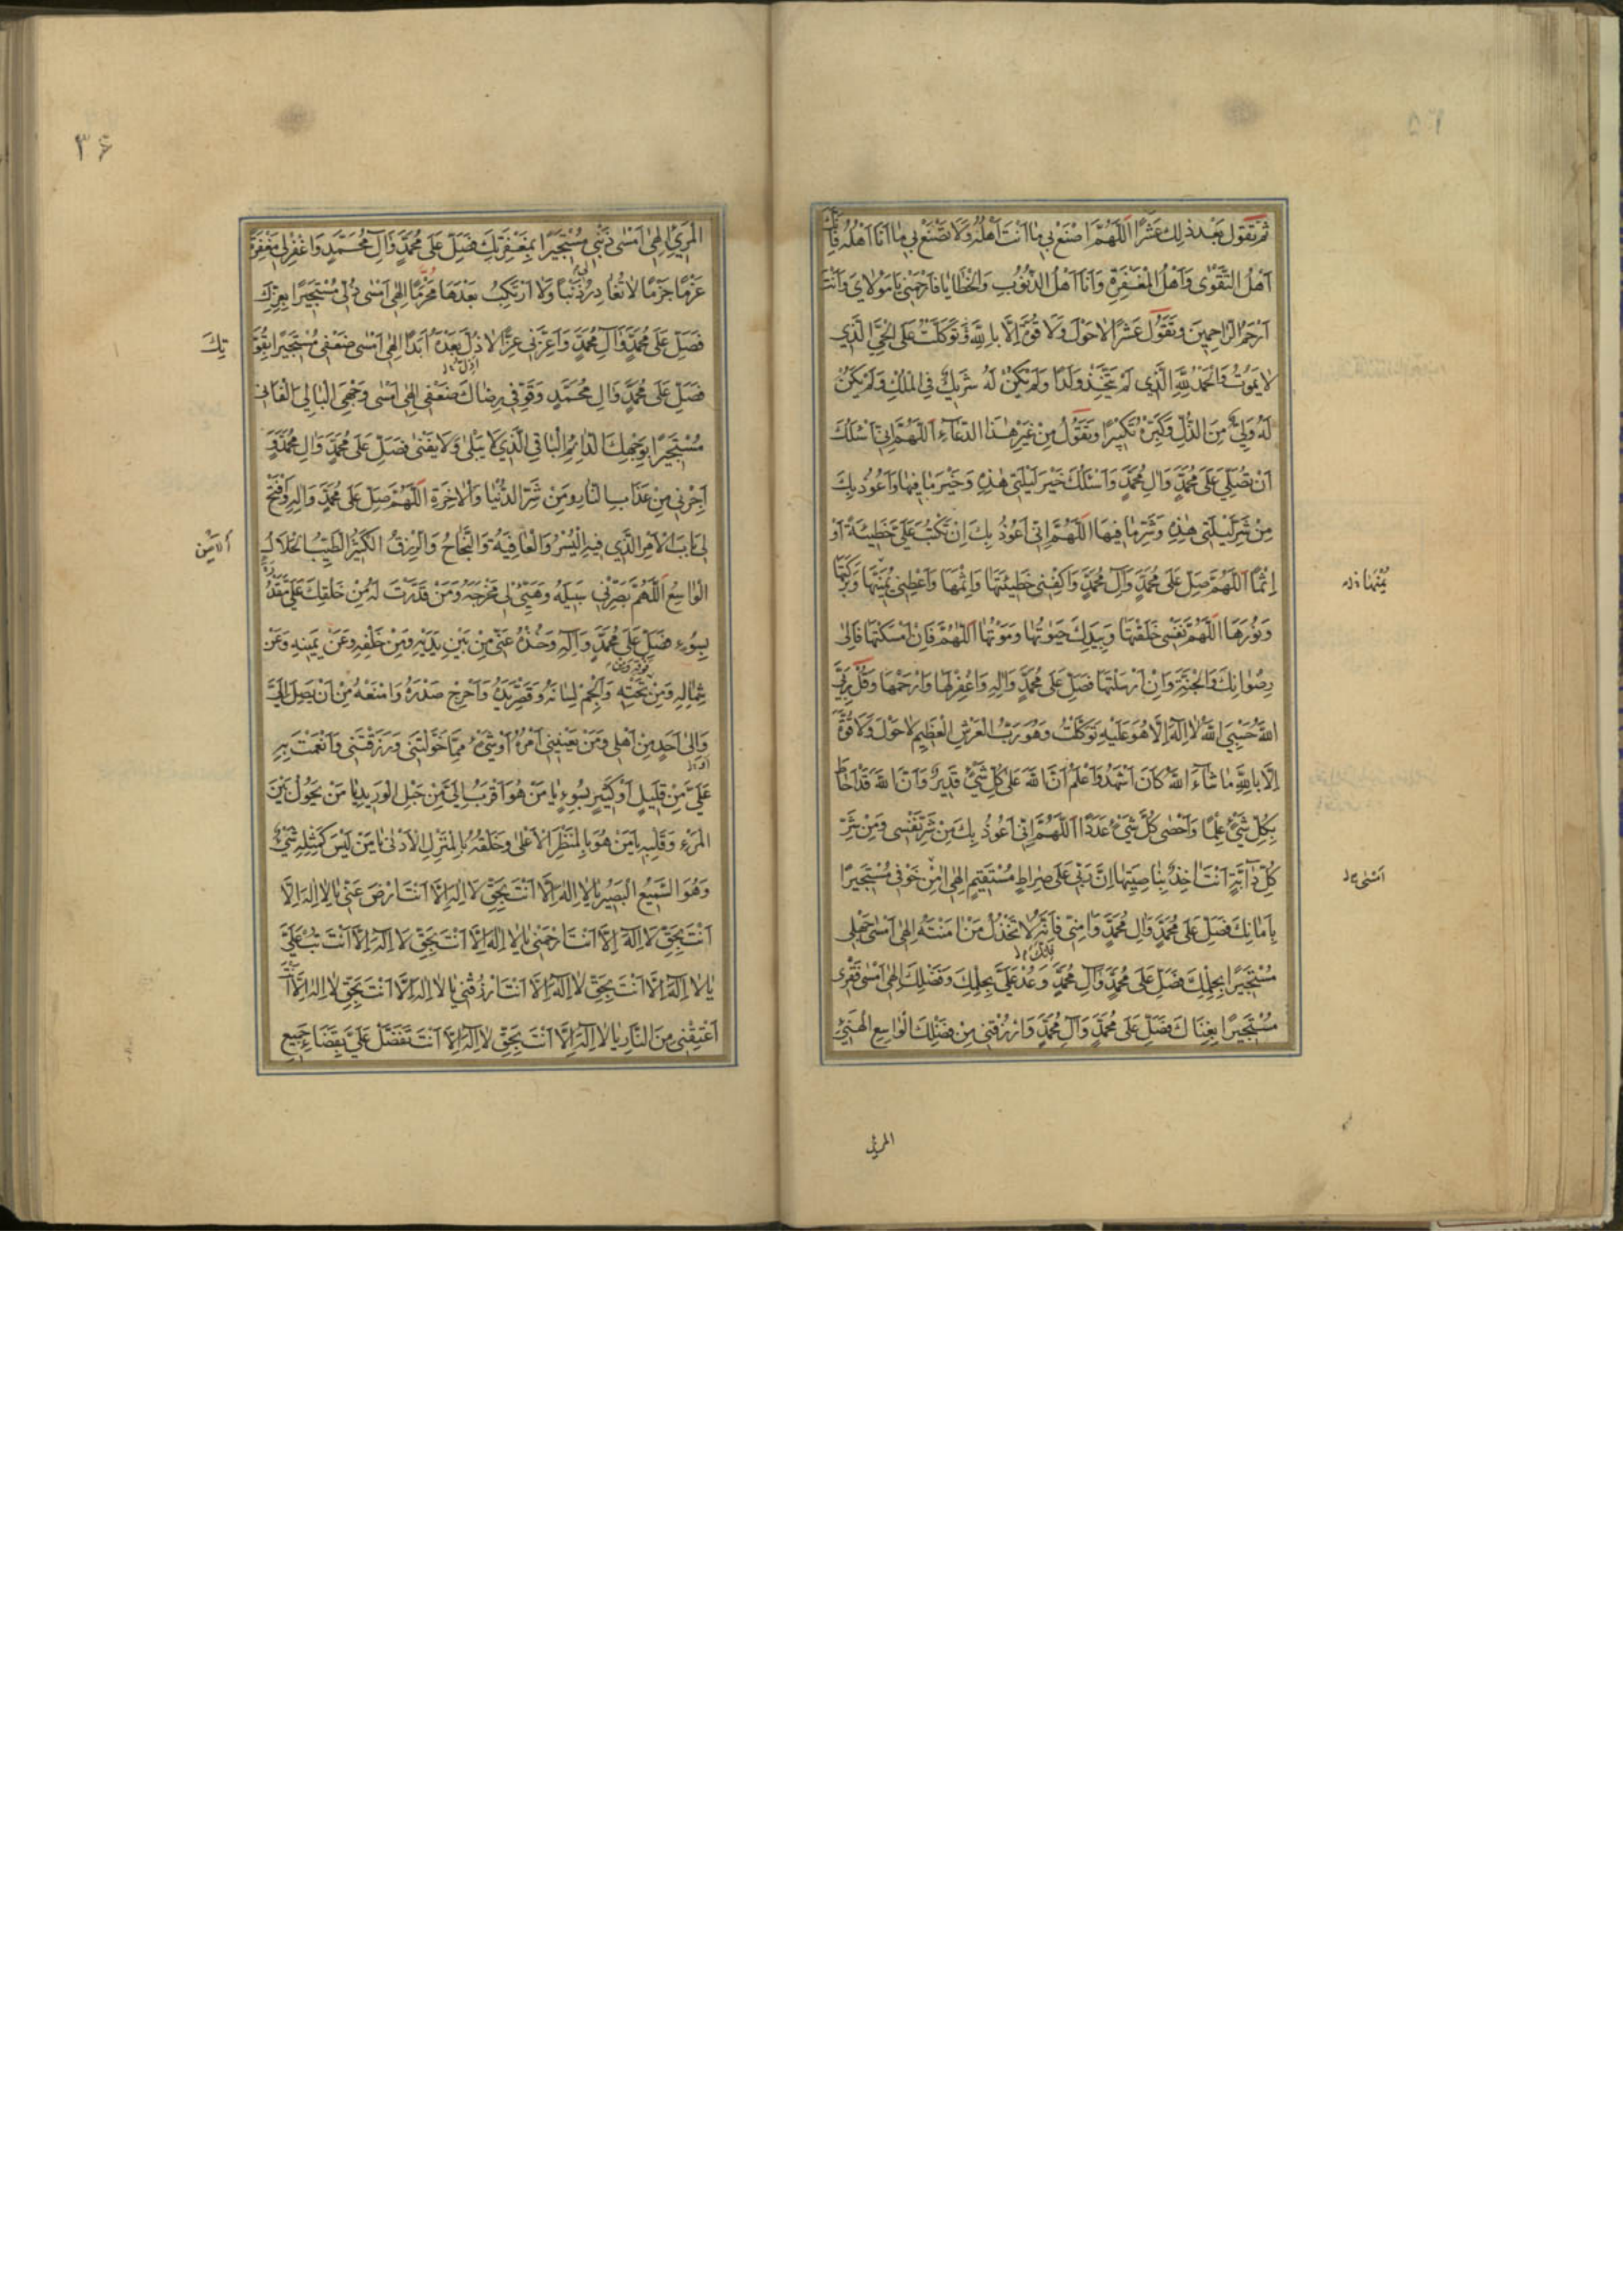 ثُمَّ تَقُولُ بَعْدَ ذٰلِكَ عَشْرًا اَللّٰهُمَّ اصْنَعْ بِي مٰا اَنْتَ اَهْلُهُ وَلَا تَصْنَعْ بِي مٰا اَنَا اَهْلُهُ فَاِنَّكَ
اَهْلُ التَّقْوٰى وَاَهْلُ الْمَغْفِرَةِ وَاَنَا اَهْلُ الذُّنُوبِ وَالْخَطٰايٰا فَارْحَمْنِي يٰا مَوْلٰايَ وَاَنْتَ
اَرْحَمُ الرّٰاحِمِينَ وَتَقُولُ عَشْرًا لٰا حَوْلَ وَلَا قُوَّةَ اِلَّا بِاللّٰهِ تَوَكَّلْتُ عَلَى الْحَيِّ الَّذِي
لٰا يَمُوتُ وَالْحَمْدُ لِلّٰهِ الَّذِي لَمْ يَتَّخِذْ وَلَدًا وَلَمْ يَكُنْ لَهُ شَرِيكٌ فِي الْمُلْكِ وَلَمْ يَكُنْ
لَهُ وَلِيٌّ مِنَ الذُّلِّ وَكَبِّرْهُ تَكْبِيرًا وَتَقُولُ مِنْ غَيْرِ هٰذَا الدُّعَاءِ اَللّٰهُمَّ اِنِّي اَسْئَلُكَ
اَنْ تُصَلِّيَ عَلَى مُحَمَّدٍ وَاٰلِ مُحَمَّدٍ وَاَسْئَلُكَ خَيْرَ لَيْلَتِي هٰذِهِ وَخَيْرَ مٰا فِيهٰا وَاَعُوذُ بِكَ
مِنْ شَرِّ لَيْلَتِي هٰذِهِ وَشَرِّ مٰا فِيهَا اَللّٰهُمَّ اِنِّي اَعُوذُ بِكَ اِنْ تَكْتُبَ عَلَيَّ خَطِيئَةً اَوْ
اِثْمًا اَللّٰهُمَّ صَلِّ عَلَى مُحَمَّدٍ وَاٰلِ مُحَمَّدٍ وَاكْفِنِي خَطِيئَتَهَا وَاِثْمَهَا وَاَعْطِنِي يُمْنَهَا وَبَرَكَتَهَا
وَنُورَهَا اَللّٰهُمَّ نَفْسِي خَلَقْتَهَا وَبِيَدِكَ حَيٰوتُهَا وَمَوْتُهَا اَللّٰهُمَّ فَاِنْ اَمْسَكْتَهَا فَاِلٰى
رِضْوٰانِكَ وَالْجَنَّةِ وَاِنْ اَرْسَلْتَهَا فَصَلِّ عَلَى مُحَمَّدٍ وَاٰلِهِ وَاغْفِرْ لَهَا وَارْحَمْهَا وَقُلْ رَبِّيَ
اللّٰهُ حَسْبِيَ اللّٰهُ لٰا اِلٰهَ اِلَّا هُوَ عَلَيْهِ تَوَكَّلْتُ وَهُوَ رَبُّ الْعَرْشِ الْعَظِيمِ لٰا حَوْلَ وَلَا قُوَّةَ
اِلَّا بِاللّٰهِ مٰا شٰاءَ اللّٰهُ كَانَ اَشْهَدُ وَاَعْلَمُ اَنَّ اللّٰهَ عَلٰى كُلِّ شَيْءٍ قَدِيرٌ وَاَنَّ اللّٰهَ قَدْ اَحَاطَ
بِكُلِّ شَيْءٍ عِلْمًا وَاَحْصٰى كُلَّ شَيْءٍ عَدَدًا اَللّٰهُمَّ اِنِّي اَعُوذُ بِكَ مِنْ شَرِّ نَفْسِي وَمِنْ شَرِّ
كُلِّ دَابَّةٍ اَنْتَ اٰخِذٌ بِنَاصِيَتِهَا اِنَّ رَبِّي عَلٰى صِرَاطٍ مُسْتَقِيمٍ اِلٰهِي اَمِنْ خَوْفِي مُسْتَجِيرًا
بِاَمَانِكَ فَصَلِّ عَلَى مُحَمَّدٍ وَاٰلِ مُحَمَّدٍ وَاٰمِنِّي فَاِنَّكَ لٰا تَخْذُلُ مَنْ اٰمَنْتَهُ اِلٰهِي اَمْسٰى جَهْلِي
مُسْتَجِيرًا بِحِلْمِكَ فَصَلِّ عَلَى مُحَمَّدٍ وَاٰلِ مُحَمَّدٍ وَعُدْ عَلَيَّ بِحِلْمِكَ وَفَضْلِكَ اِلٰهِي اَمْسٰى فَقْرِي
مُسْتَجِيرًا بِغِنَاكَ فَصَلِّ عَلَى مُحَمَّدٍ وَاٰلِ مُحَمَّدٍ وَارْزُقْنِي مِنْ فَضْلِكَ الْوٰاسِعِ الْهَنِيءِ
المرئ
۳۶
الْمَرِيءِ اِلٰهِي اَمْسٰى ذَنْبِي مُسْتَجِيرًا بِمَغْفِرَتِكَ فَصَلِّ عَلَى مُحَمَّدٍ وَاٰلِ مُحَمَّدٍ وَاغْفِرْ لِي مَغْفِرَةً
عَزْمًا جَزْمًا لٰا تُغَادِرُ ذَنْبًا وَلَا اَرْتَكِبُ بَعْدَهَا مُحَرَّمًا اِلٰهِي اَمْسٰى ذُلِّي مُسْتَجِيرًا بِعِزِّكَ
فَصَلِّ عَلَى مُحَمَّدٍ وَاٰلِ مُحَمَّدٍ وَاَعِزَّنِي عِزًّا لٰا ذُلَّ بَعْدَهُ اَبَدًا اِلٰهِي اَمْسٰى ضَعْفِي مُسْتَجِيرًا بِقُوَّ
تِكَ
فَصَلِّ عَلَى مُحَمَّدٍ وَاٰلِ مُحَمَّدٍ وَقَوِّ فِي رِضٰاكَ ضَعْفِي اِلٰهِي اَمْسٰى وَجْهِيَ الْبَالِي الْفَانِي
مُسْتَجِيرًا بِوَجْهِكَ الدَّائِمِ الْبَاقِي الَّذِي لَا يَبْلٰى وَلَا يَفْنٰى فَصَلِّ عَلَى مُحَمَّدٍ وَاٰلِ مُحَمَّدٍ وَ
اَجِرْنِي مِنْ عَذَابِ النَّارِ وَمِنْ شَرِّ الدُّنْيَا وَالْاٰخِرَةِ اَللّٰهُمَّ صَلِّ عَلَى مُحَمَّدٍ وَاٰلِهِ وَافْتَحْ
لِي بَابَ الْاَمْرِ الَّذِي فِيهِ الْيُسْرُ وَالْعَافِيَةُ وَالنَّجَاحُ وَالرِّزْقُ الْكَثِيرُ الطَّيِّبُ الْحَلَالُ
الْوَاسِعُ اَللّٰهُمَّ بَصِّرْنِي سَبِيلَهُ وَهَيِّئْ لِي مَخْرَجَهُ وَمَنْ قَدَّرْتَ لَهُ مِنْ خَلْقِكَ عَلَيَّ مَقْدُرَةً
بِسُوءٍ فَصَلِّ عَلَى مُحَمَّدٍ وَاٰلِهِ وَخُذْهُ عَنِّي مِنْ بَيْنِ يَدَيْهِ وَمِنْ خَلْفِهِ وَعَنْ يَمِينِهِ وَعَنْ
شِمَالِهِ وَمِنْ تَحْتِهِ وَاَلْجِمْ لِسَانَهُ وَقَصِّرْ يَدَهُ وَاَحْرِجْ صَدْرَهُ وَامْنَعْهُ مِنْ اَنْ يَصِلَ اِلَيَّ
وَاِلٰى اَحَدٍ مِنْ اَهْلِي وَمَنْ يَعْنِينِي اَمْرُهُ اَوْ شَيْءٍ مِمَّا خَوَّلْتَنِي وَرَزَقْتَنِي وَاَنْعَمْتَ بِهِ
عَلَيَّ مِنْ قَلِيلٍ اَوْ كَثِيرٍ بِسُوءٍ يَا مَنْ هُوَ اَقْرَبُ اِلَيَّ مِنْ حَبْلِ الْوَرِيدِ يَا مَنْ يَحُولُ بَيْنَ
الْمَرْءِ وَقَلْبِهِ يَا مَنْ هُوَ بِالْمَنْظَرِ الْاَعْلٰى وَخَلْقُهُ بِالْمَنْزِلِ الْاَدْنٰى يَا مَنْ لَيْسَ كَمِثْلِهِ شَيْءٌ
وَهُوَ السَّمِيعُ الْبَصِيرُ يَا لَا اِلٰهَ اِلَّا اَنْتَ بِحَقِّ لَا اِلٰهَ اِلَّا اَنْتَ ارْضَ عَنِّي يَا لَا اِلٰهَ اِلَّا
اَنْتَ بِحَقِّ لَا اِلٰهَ اِلَّا اَنْتَ ارْحَمْنِي يَا لَا اِلٰهَ اِلَّا اَنْتَ بِحَقِّ لَا اِلٰهَ اِلَّا اَنْتَ تُبْ عَلَيَّ
يَا لَا اِلٰهَ اِلَّا اَنْتَ بِحَقِّ لَا اِلٰهَ اِلَّا اَنْتَ ارْزُقْنِي يَا لَا اِلٰهَ اِلَّا اَنْتَ بِحَقِّ لَا اِلٰهَ اِلَّا اَنْتَ
اَعْتِقْنِي مِنَ النَّارِ يَا لَا اِلٰهَ اِلَّا اَنْتَ بِحَقِّ لَا اِلٰهَ اِلَّا اَنْتَ تَفَضَّلْ عَلَيَّ بِقَضَاءِ جَمِيعِ